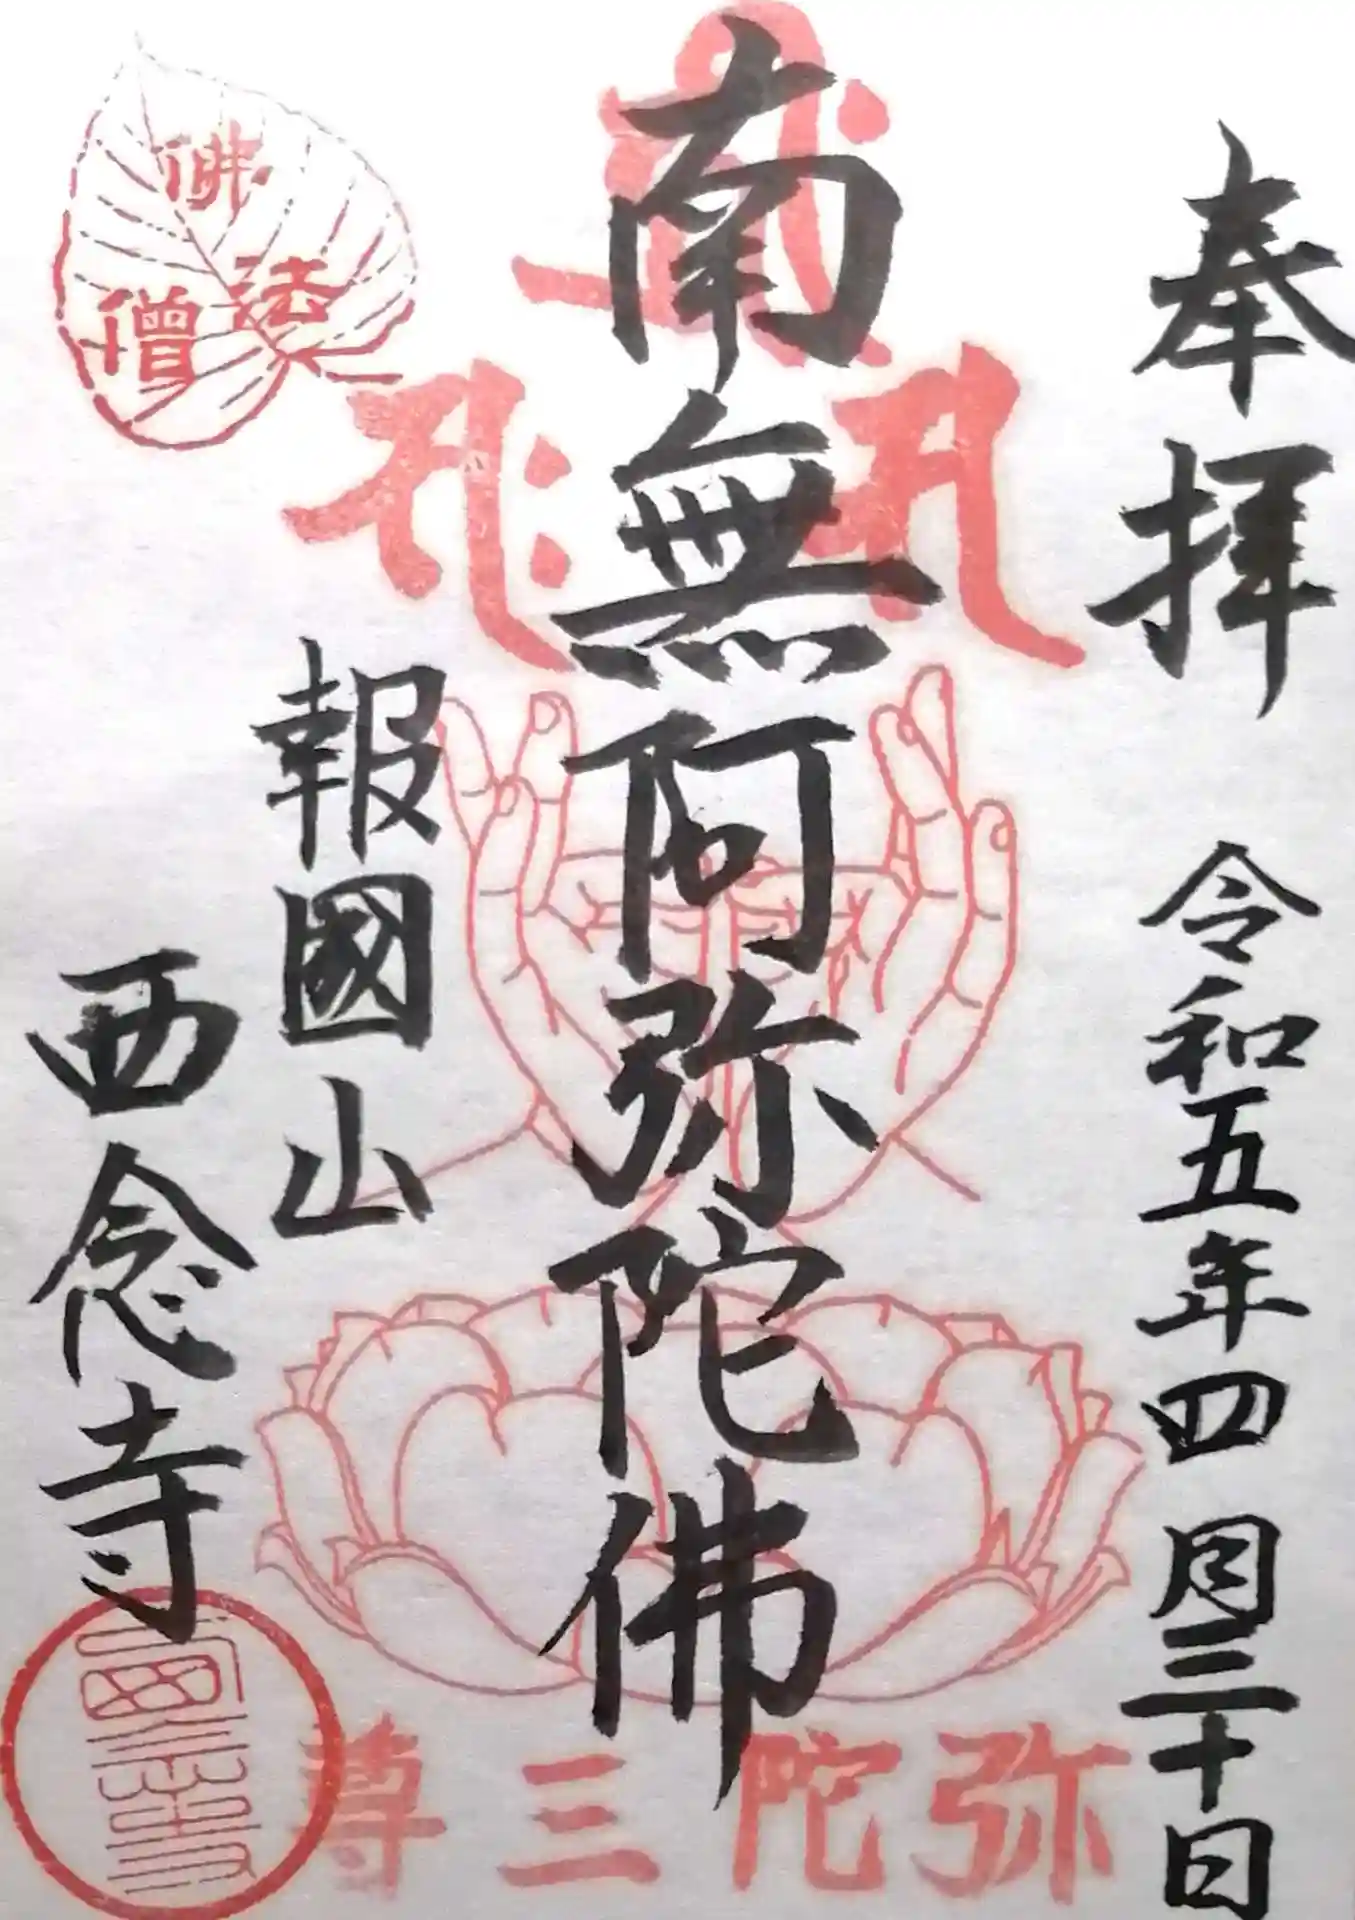 奉拝
令和五年四月三十日
南無阿弥陀佛
報國山
西念寺
佛
法
僧
弥陀三尊